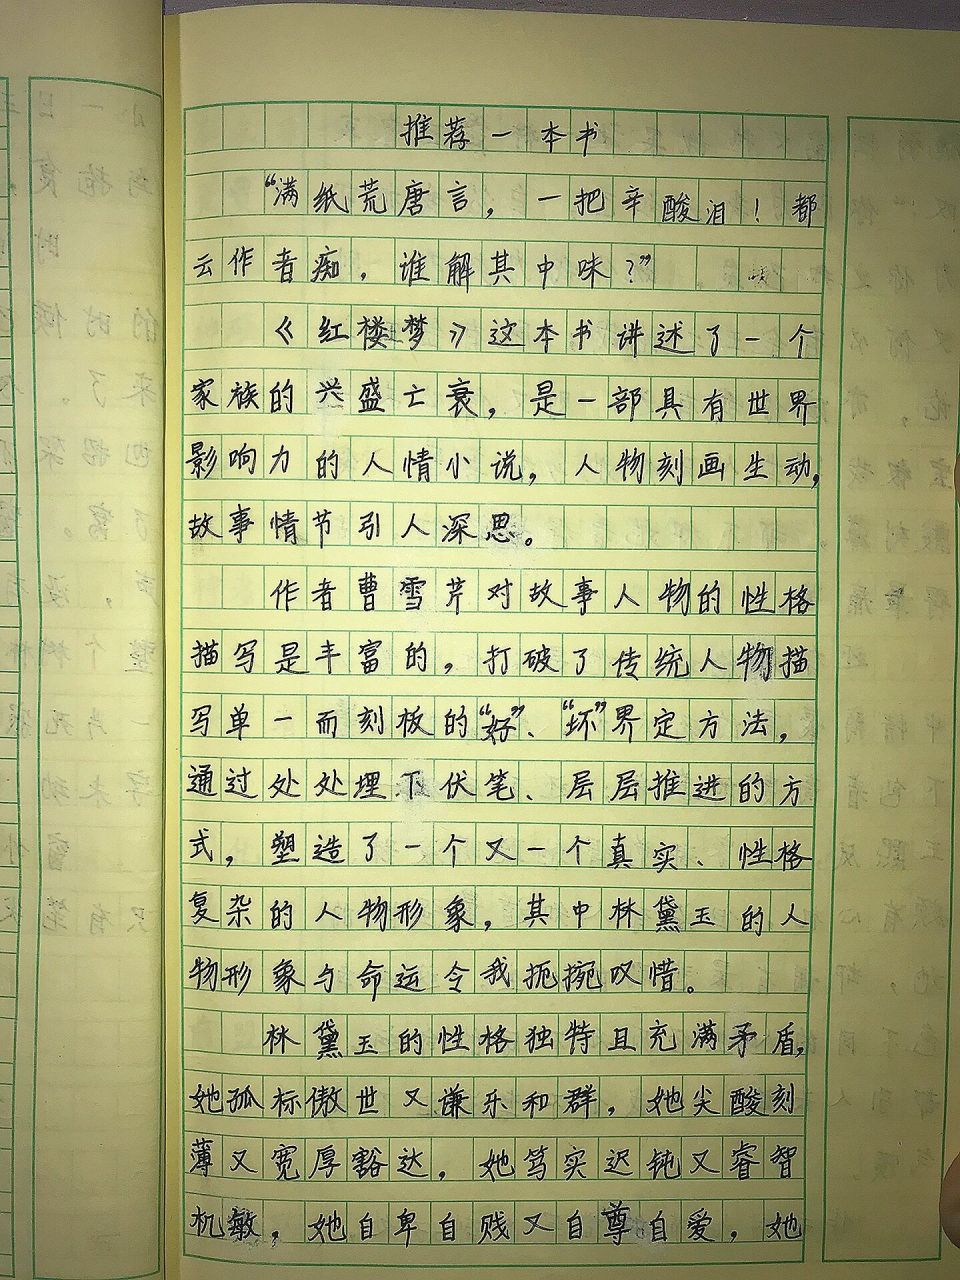 推荐一本书
“满纸荒唐言，一把辛酸泪！都
云作者痴，谁解其中味？”
《红楼梦》这本书讲述了一个
家族的兴盛亡衰，是一部具有世界
影响力的人情小说，人物刻画生动，
故事情节引人深思。
作者曹雪芹对故事人物的性格
描写是丰富的，打破了传统人物描
写单一而刻板的“好”、“坏”界定方法，
通过处处埋下伏笔、层层推进的方
式，塑造了一个又一个真实、性格
复杂的人物形象，其中林黛玉的人
物形象与命运令我扼捥叹惜。
林黛玉的性格独特且充满矛盾，
她孤标傲世又谦乐和群，她尖酸刻
薄又宽厚豁达，她笃实迟钝又睿智
机敏，她自卑自贱又自尊自爱，她